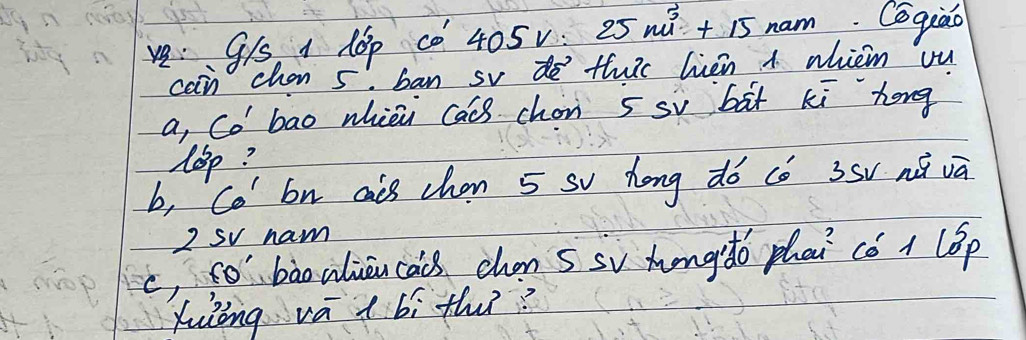 VD: G/s 1 lớp có 40SV: 25 nữ + 15 nam. Cô giáo
cần chọn 5 bạn SV để thực hiện 1 nhiệm vụ
a, Có bao nhiêu cách chọn 5 SV bất kì trong
lớp?
b, Có bn cách chọn 5 SV trong đó có 3SV nữ và
2 SV nam
c, Có bao nhiêu cách chọn 5 SV trong đó phải có 1 lớp
trưởng và 1 bí thư?